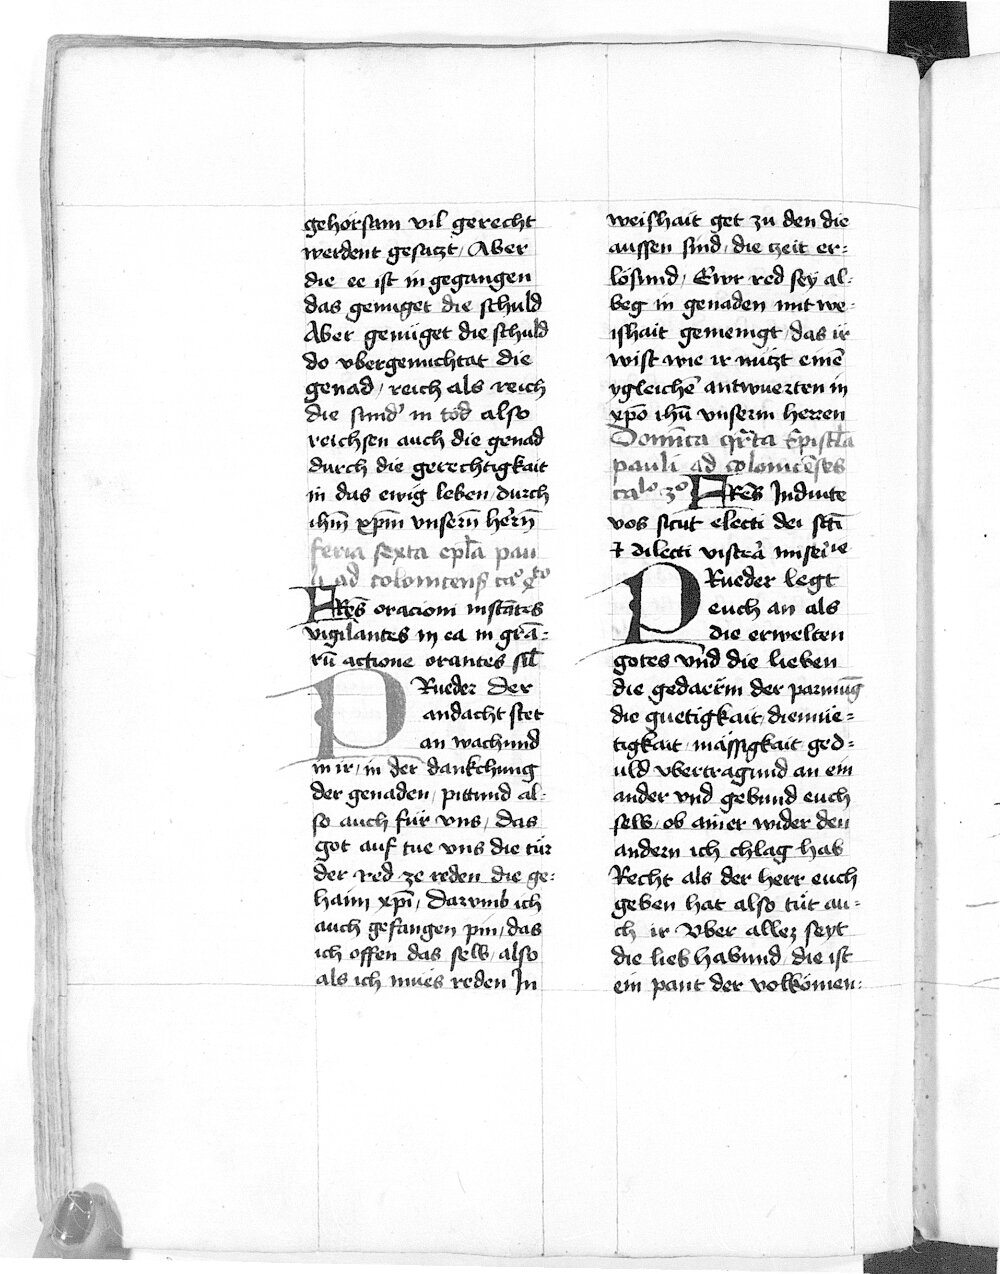 gehorsam vil gerecht
werdent gesaczt / Aber
die ee ist in gegangen
das genüget die schuld
Aber genüget die schuld
do vbergenuchtat die
genad / reich als reich
die sund' in tod also
reichsen auch die genad
durch die gerechtigkait
in das ewig leben / durch
ihm̄ xp̄m vnsern̄ hern̄
feria sexta ep̄la pau
li ad colomcens
FRēs oracioni instātes
vigilantes in ea in grā-
rū actione orantes sil̄
PRueder der
andacht stet
an wachund
in ir / in der danckchung
der genaden / pittund al-
so auch für vns / das
got auf tue vns die tür
der red ze reden die ge-
haim xp̄i / Darvmb ich
auch gefangen pin / das
ich offen das selb / also
als ich mues reden In
weishait get zu den die
aussen sind / die czeit er-
lösund / Ewr red sey al-
beg in genaden mit we-
ishait gemengt / das ir
wist wie ir müzt einē
ygleichē antwuerten in
xp̄o ihū vnserm herren
Domīca qr̄ta Epistl̄a
pauli ad colomcēses
caº 3º FRēs Induite
vos sicut electi dei scti
⁊ dilecti viscerā misericīe
PRueder legt
euch an als
die erwelten
gotes vnd die lieben
die gedaerm der parmūg
die guetigkait / diemüe-
tigkait / mässigkait ged-
uld vbertragund an ein
ander vnd gebund euch
selb / ob ainer wider den
andern ich chlag hab
Recht als der herr euch
geben hat also tüt au-
ch ir Vber allez seyt
die lieb habund / die ist
ein pant der volkömen-